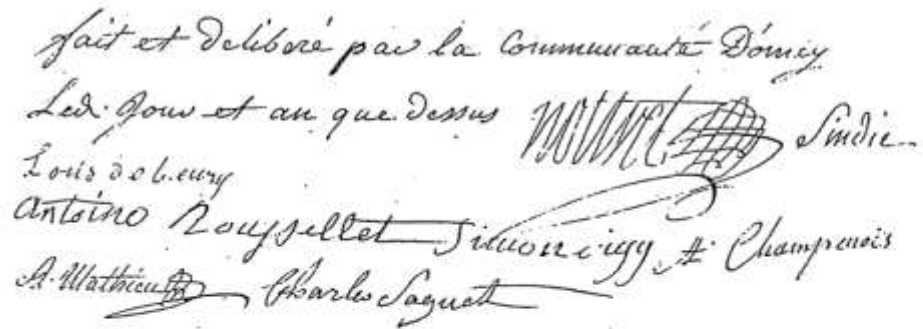 fait et deliberé par la Communauté Dómey
Led. Jour et an que Dessus Sindic
Louis
Antoine Rouyssellet Simon A Champenois
A. Mathieu Charles Saguet